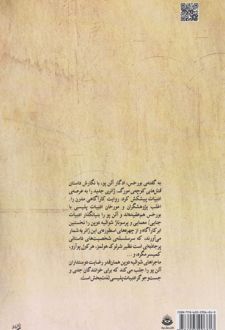 به گفته‌ی بورخس، ادگار آلن پو، با نگارش داستان
قتل‌های کوچه‌ی مورگ، ژانری جدید را به عرصه‌ی
ادبیات پیشکش کرد: روایت کارآگاهی مدرن را.
اغلب پژوهشگران و مورخان ادبیات پلیسی با
بورخس هم‌عقیده‌اند و آلن پو را بنیانگذار ادبیات
جنایی/ معمایی و پرسوناژ شوالیه دوپن را نخستین
کارآگاه و از چهره‌های اسطوره‌ای این ژانر به شمار
می‌آورند، که سرسلسله‌ی شخصیت‌های داستانی
برجسته‌ای نظیر شرلوک هولمز، هرکول پوآرو،
کمیسر مگره و... است.
ماجراهای شوالیه دوپن همان‌قدر رضایت دوستداران
آلن پو را جلب می‌کند که برای خوانندگان جدی و
جست‌وجوگر ادبیات پلیسی لذت‌بخش است.